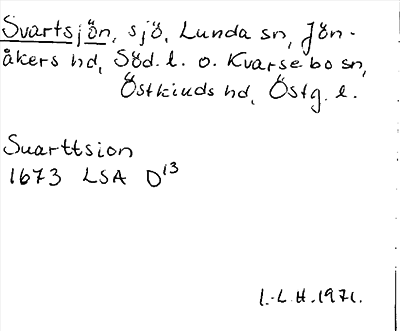 Svartsjön, sjö, Lunda sn, Jön-
åkers hd, Söd. l. o. Kvarsebo sn,
Östkinds hd, Östg. l.
Suarttsion
1673 LSA D13
I.-L. H. 1971.